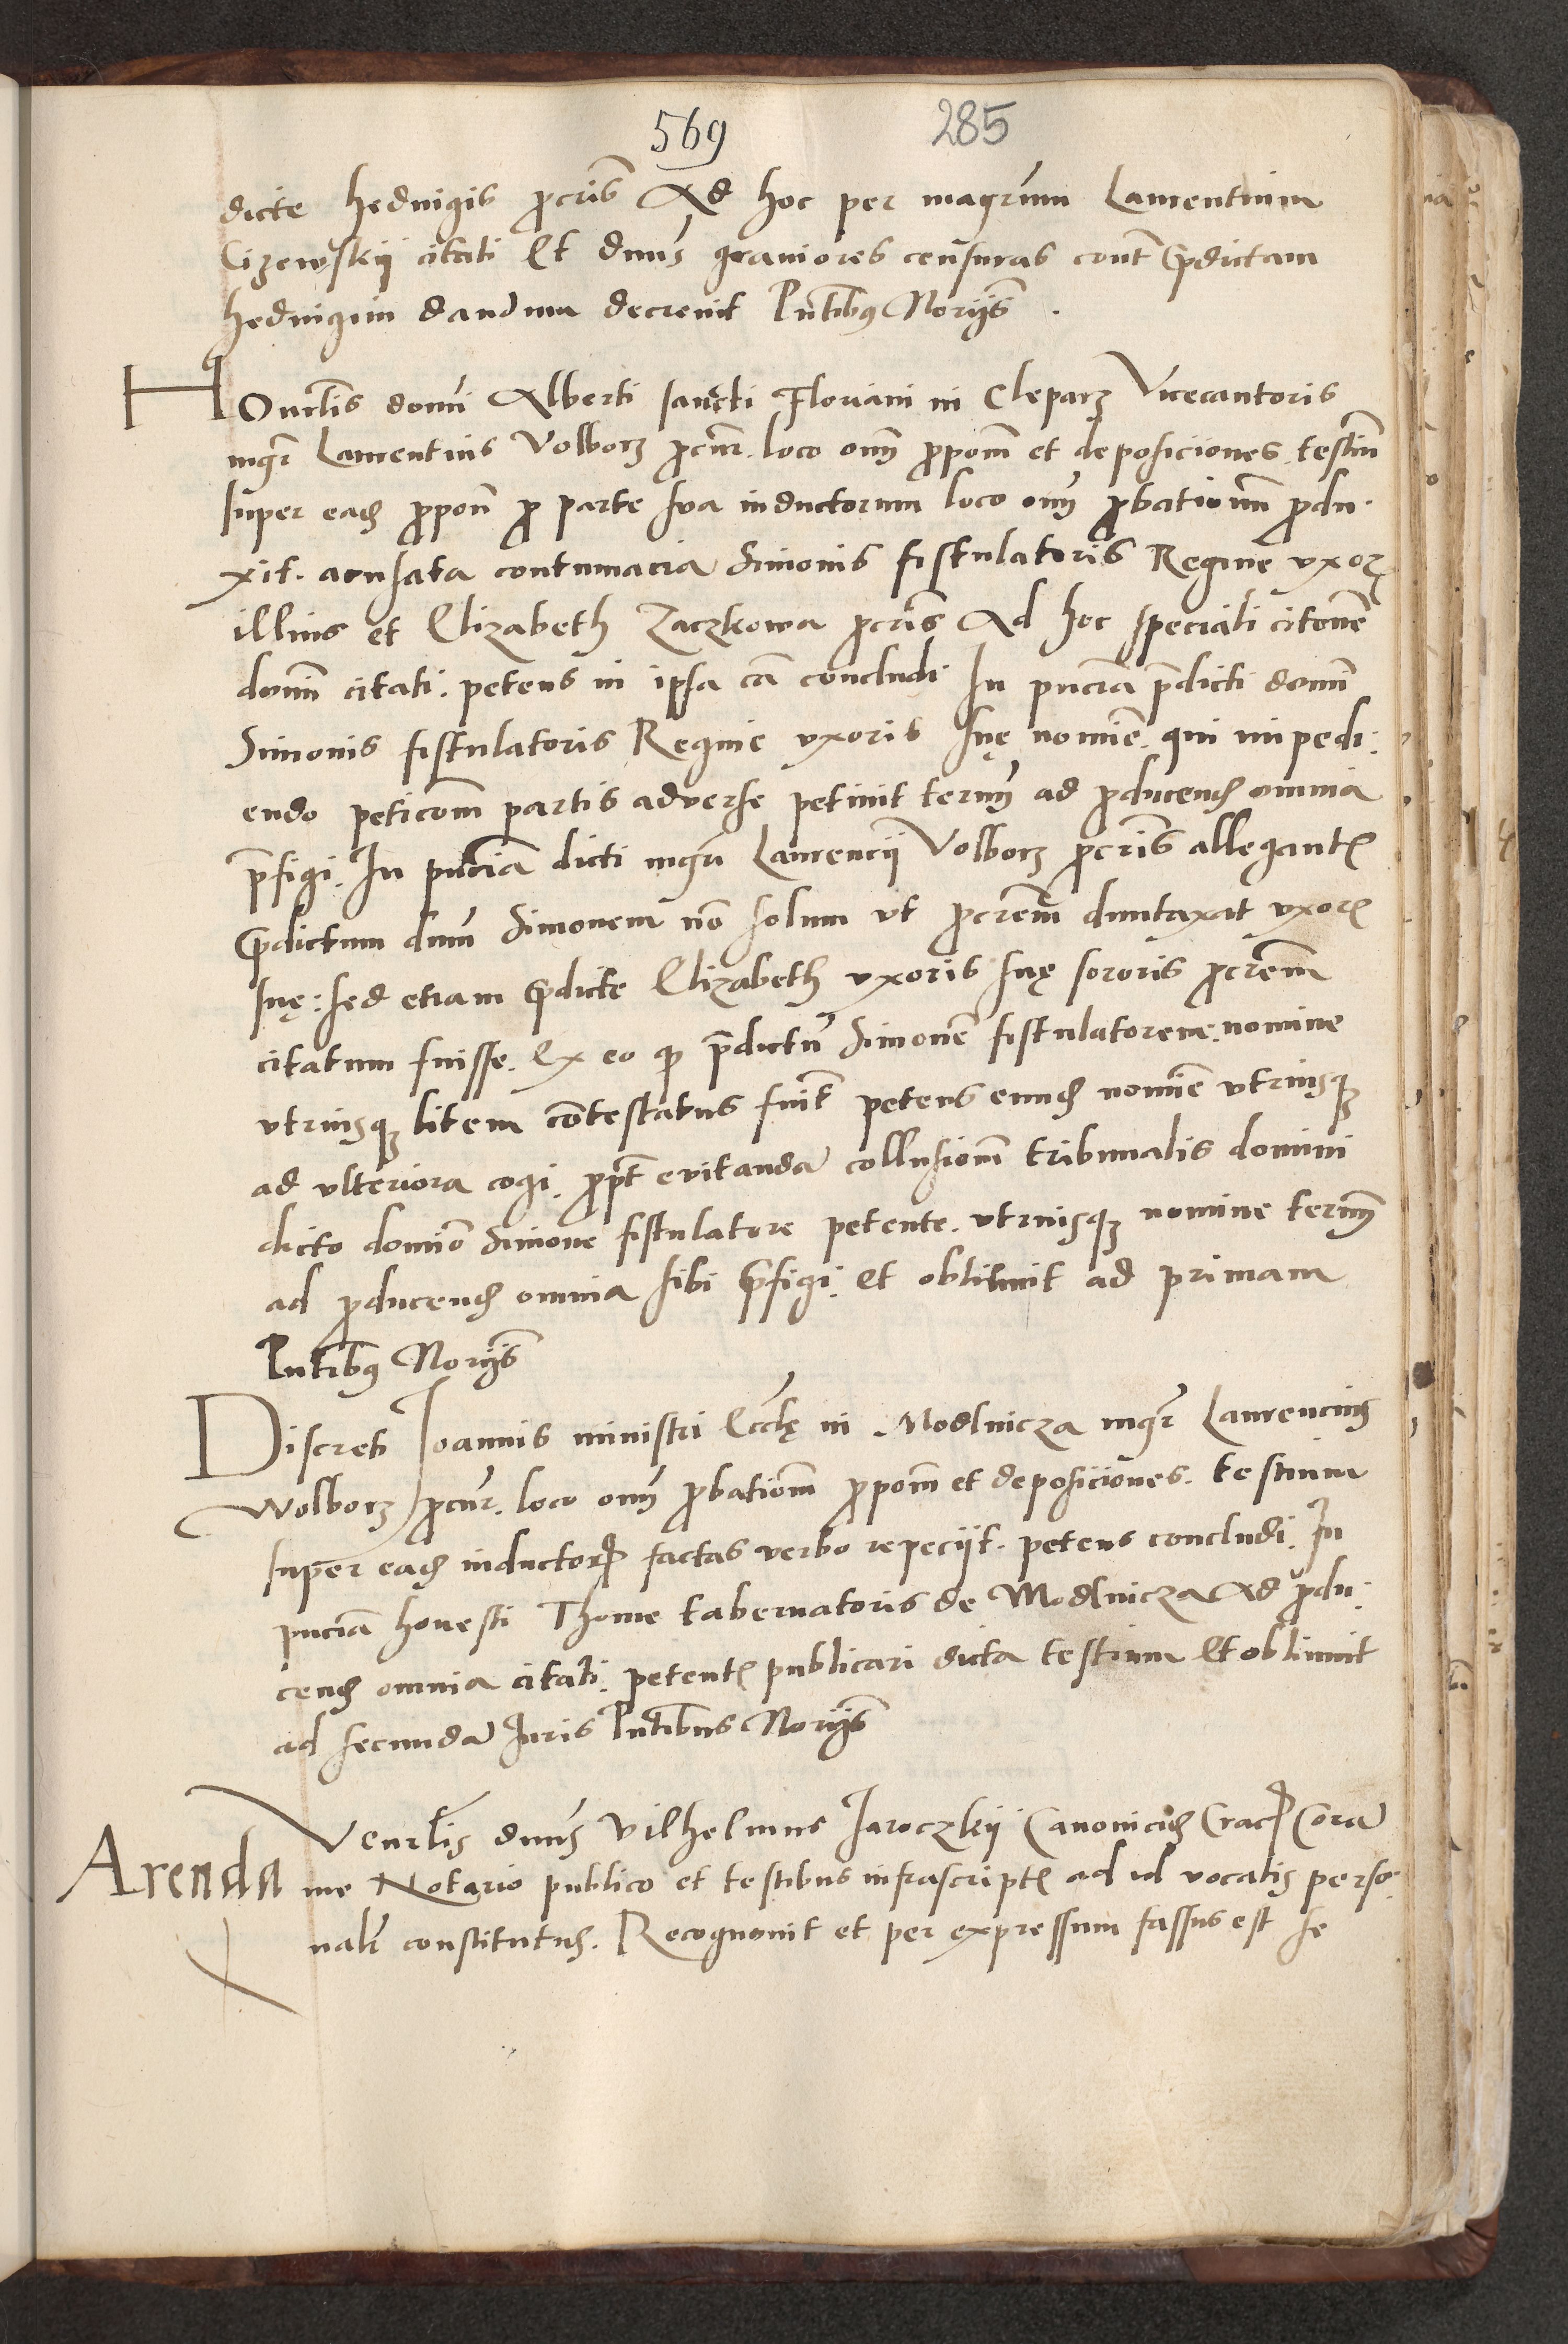 569 285
dicte Hedvigis p̱cris̄ Ad hoc per magrum Laurentium
Cizewskij citati Et dnus graviores censuras cont̄ p̱dictam
Hedvigim dandum decrevit Pn̄tibus Norijs̄ .
Honrlis domi Alberti sancti Floriani in Cleparz Vicecantoris
mgr̄ Laurentius Volborz p̱cur̄. loco om̄ p̱pom̄ et deposiciones. testiū
super easd p̱pon̄ p̱ parte sua inductorum loco om̄ p̱bationū p̱du.
xit. acusata contumacia Simonis fistulatoris Regine uxor̄
illius et Elizabeth Zaczkowa p̱cris̄ Ad hoc speciali citonē
domī citati. petens in ipsa cā concludi In pn̄cia p̄dicti domī
Simonis fistulatoris Regine uxoris suę nomīe. qui impedi:
endo peticom̄ partis adverse petiuit termī ad p̱ducend omnia
p̄figi. In pn̄cia dicti mgrī Laurencij Volborz p̱cris̄ allegant̄
p̱dictum dnū Simonem nō solum ut p̱crem̄ duntaxat uxor̄
suę: sed etiam p̱dicte Elizabeth uxoris suę sororis p̱crem̄
citatum fuisse. Ex eo q̱ p̄dictū Simonē fistulatorem. nomine
utriusq; litem cōtestatus fuit petens eund nomīe utriusq;
ad ulteriora cogi. p̱pt̄ evitandā collusionē tribunalis domini
dicto domīo Simone fistulatore petente. utriusq; nomine termī
ad p̱ducend omnia sibi p̱figi. et obtinuit ad primam
Pn̄tibus Norijs̄
Discreti Joannis ministri Eccl̄ę in Modlnicza mgr̄ Laurencius
Wolborz p̱cur̄. loco om̄ p̱bationū p̱pom̄ et deposiciones. testium
super easd inductoṟ factas verbo repeciit. petens concludi. In
pn̄ciā honesti Thome tabernatoris de Modlnicza Ad p̱du:
cend omnia citati. petent̄ publicari dicta testium Et obtinuit
ad secundā Juris Pn̄tibus Norijs̄
Venrlis̄ dnus Vilhelmus Jaroczkij Canonicus Crac̄ Corā
Arenda me Notario publico et testibus infrascript̄ ad id vocatis perso.
nalr̄ constitutus. Recognovit et per expressum fassus est se